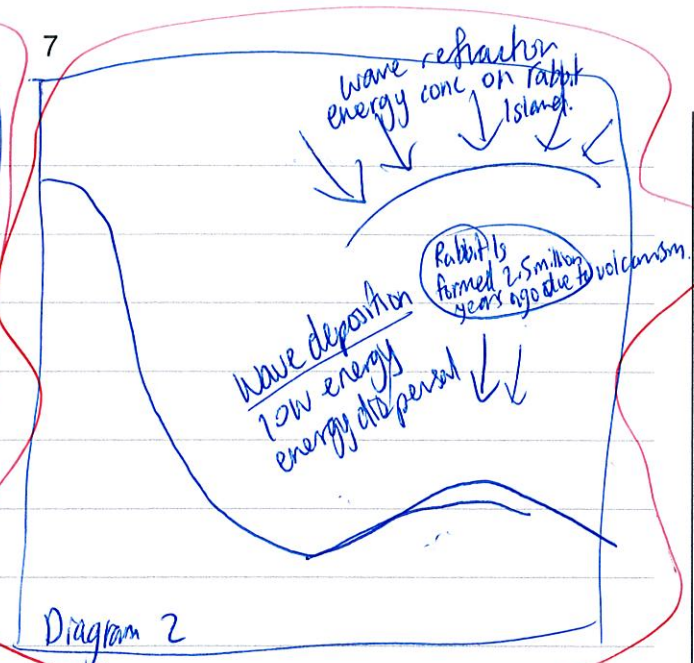 7
wave refraction
energy conc on rabbit
Island.
Rabbit Is
formed 2.5 million
years ago due to volcanism.
Wave deposition
low energy
energy dispersal
Diagram 2